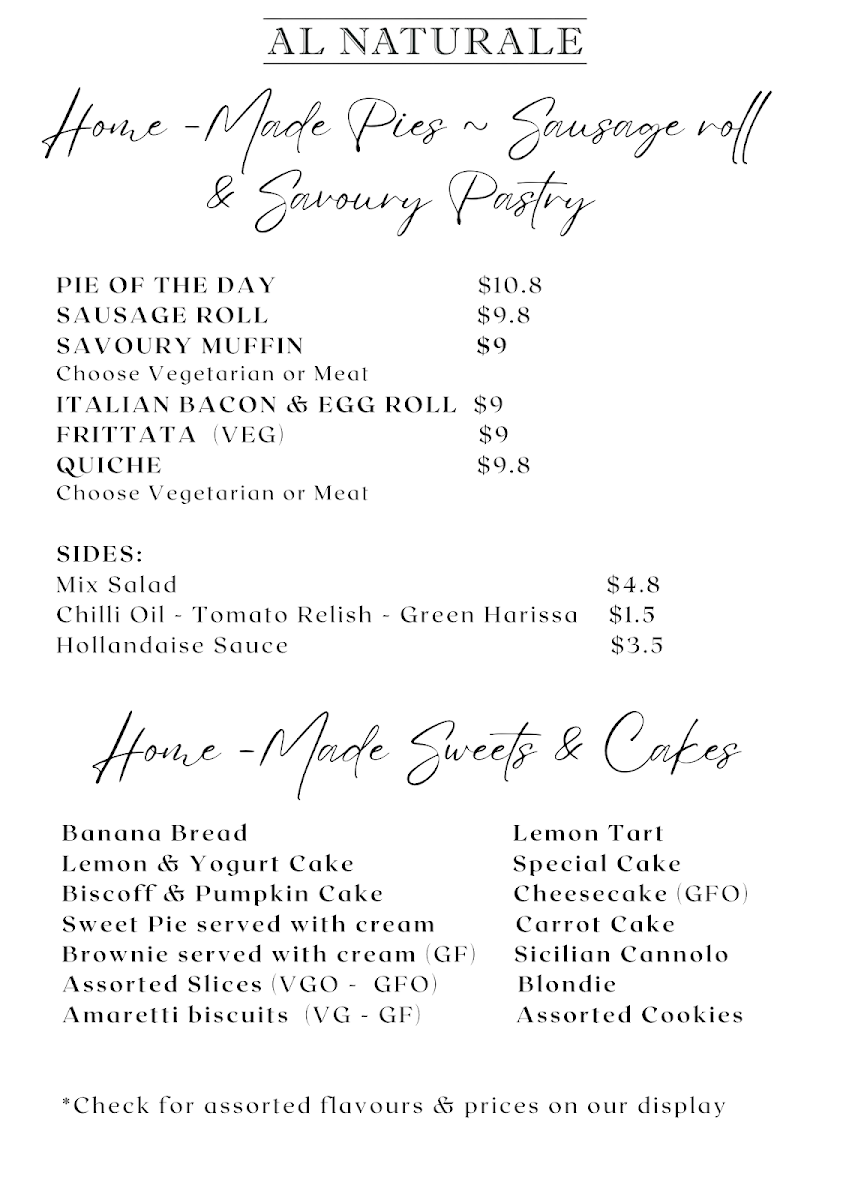 AL NATURALE
Home -Made Pies ~ Sausage roll
& Savoury Pastry
PIE OF THE DAY $10.8
SAUSAGE ROLL $9.8
SAVOURY MUFFIN $9
Choose Vegetarian or Meat
ITALIAN BACON & EGG ROLL $9
FRITTATA (VEG) $9
QUICHE $9.8
Choose Vegetarian or Meat
SIDES:
Mix Salad $4.8
Chilli Oil - Tomato Relish - Green Harissa $1.5
Hollandaise Sauce $3.5
Home -Made Sweets & Cakes
Banana Bread
Lemon & Yogurt Cake
Biscoff & Pumpkin Cake
Sweet Pie served with cream
Brownie served with cream (GF)
Assorted Slices (VGO - GFO)
Amaretti biscuits (VG - GF)
Lemon Tart
Special Cake
Cheesecake (GFO)
Carrot Cake
Sicilian Cannolo
Blondie
Assorted Cookies
*Check for assorted flavours & prices on our display